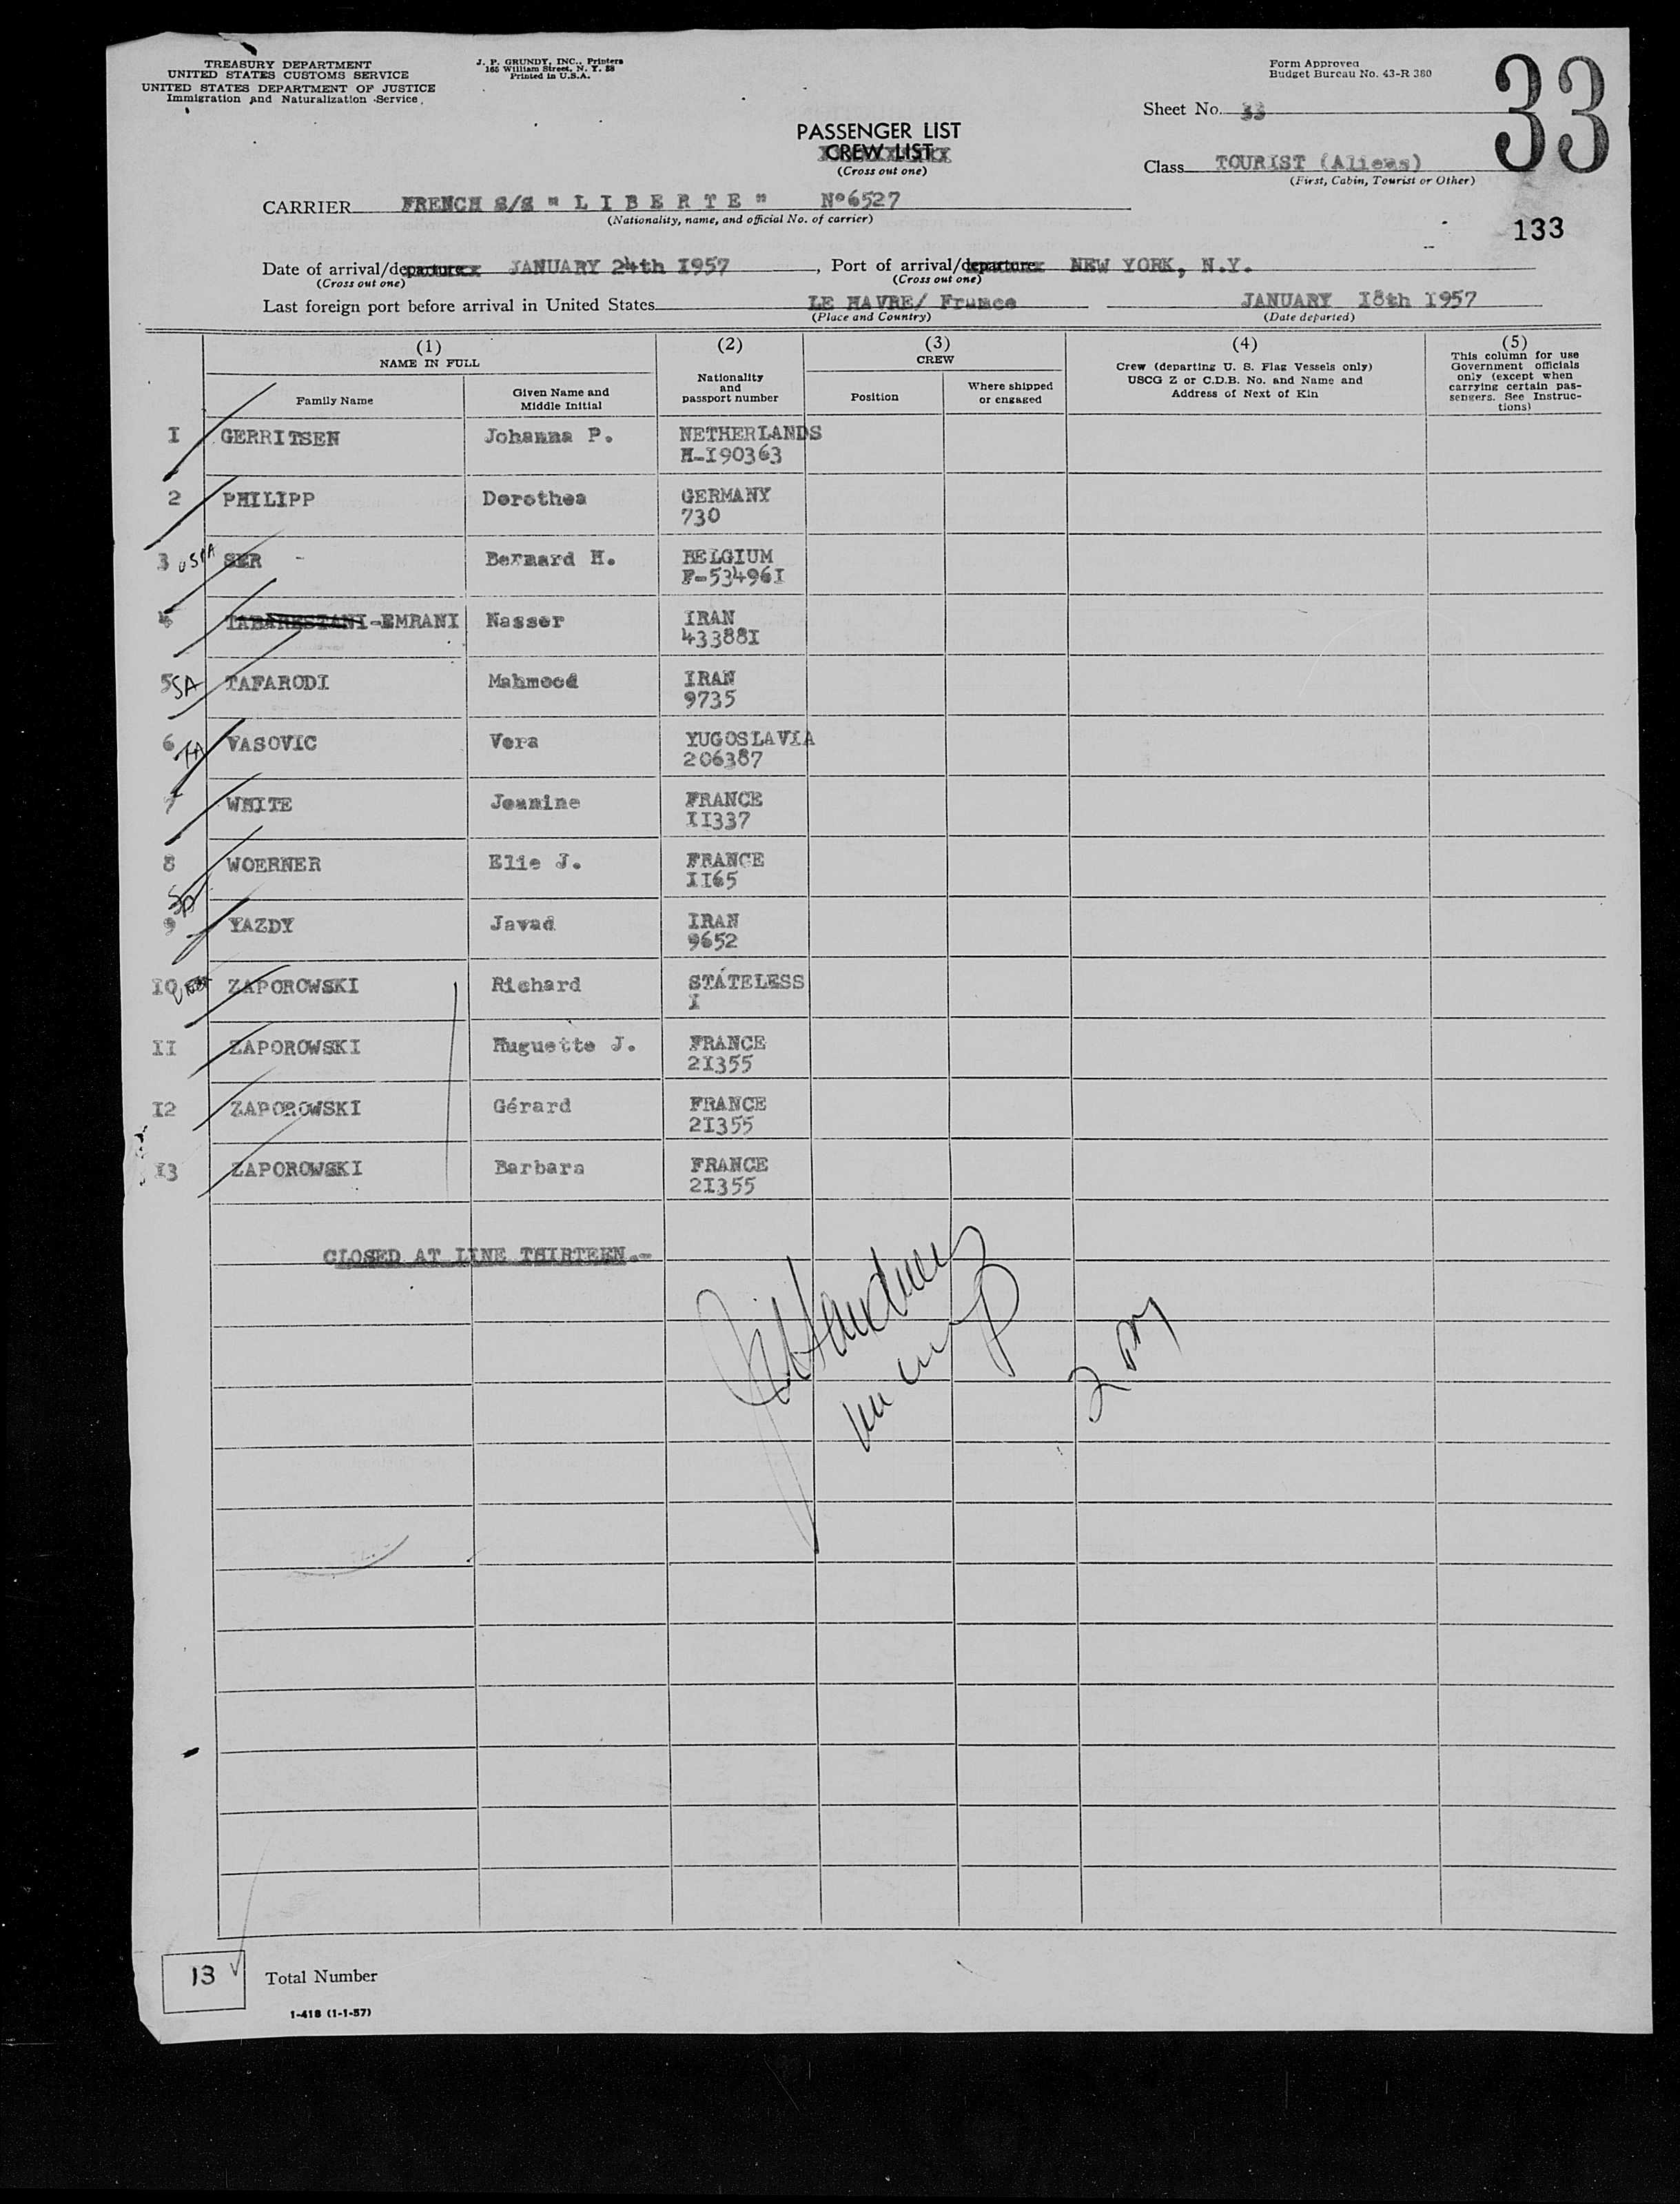 TREASURY DEPARTMENT
UNITED STATES CUSTOMS SERVICE
UNITED STATES DEPARTMENT OF JUSTICE
Immigration and Naturalization Service
J. P. GRUNDY, INC., Printers
165 William Street, N. Y. 38
Printed in U.S.A.
Form Approved
Budget Bureau No. 43-R 380
33
Sheet No. 33
PASSENGER LIST
CREW LIST
(Cross out one)
Class TOURIST (Aliens)
(First, Cabin, Tourist or Other)
CARRIER FRENCH S/S " L I B E R T E " N°6527
(Nationality, name, and official No. of carrier)
133
Date of arrival/departure JANUARY 24th I957, Port of arrival/departure NEW YORK, N.Y.
(Cross out one) (Cross out one)
Last foreign port before arrival in United States LE HAVRE/ France JANUARY I8th I957
(Place and Country) (Date departed)
(1) (2) (3) (4) (5)
NAME IN FULL
Family Name
Given Name and Middle Initial
Nationality and passport number
CREW
Position
Where shipped or engaged
Crew (departing U. S. Flag Vessels only)
USCG Z or C.D.B. No. and Name and
Address of Next of Kin
This column for use
Government officials
only (except when
carrying certain pas-
sengers. See Instruc-
tions)
I GERRITSEN Johanna P. NETHERLANDS
H-I90363
2 PHILIPP Dorothea GERMANY
730
3 SER Bernard H. BELGIUM
F-53496I
4 TABARESTANI-EMRANI Nasser IRAN
43388I
5 SA TAFARODI Mahmood IRAN
9735
6 VASOVIC Vera YUGOSLAVIA
206387
7 WHITE Jeanine FRANCE
II337
8 WOERNER Elie J. FRANCE
II65
9 YAZDY Javad IRAN
9652
IO ZAPOROWSKI Richard STATELESS
I
II ZAPOROWSKI Huguette J. FRANCE
2I355
I2 ZAPOROWSKI Gérard FRANCE
2I355
I3 ZAPOROWSKI Barbara FRANCE
2I355
CLOSED AT LINE THIRTEEN.-
13 Total Number
1-418 (1-1-57)